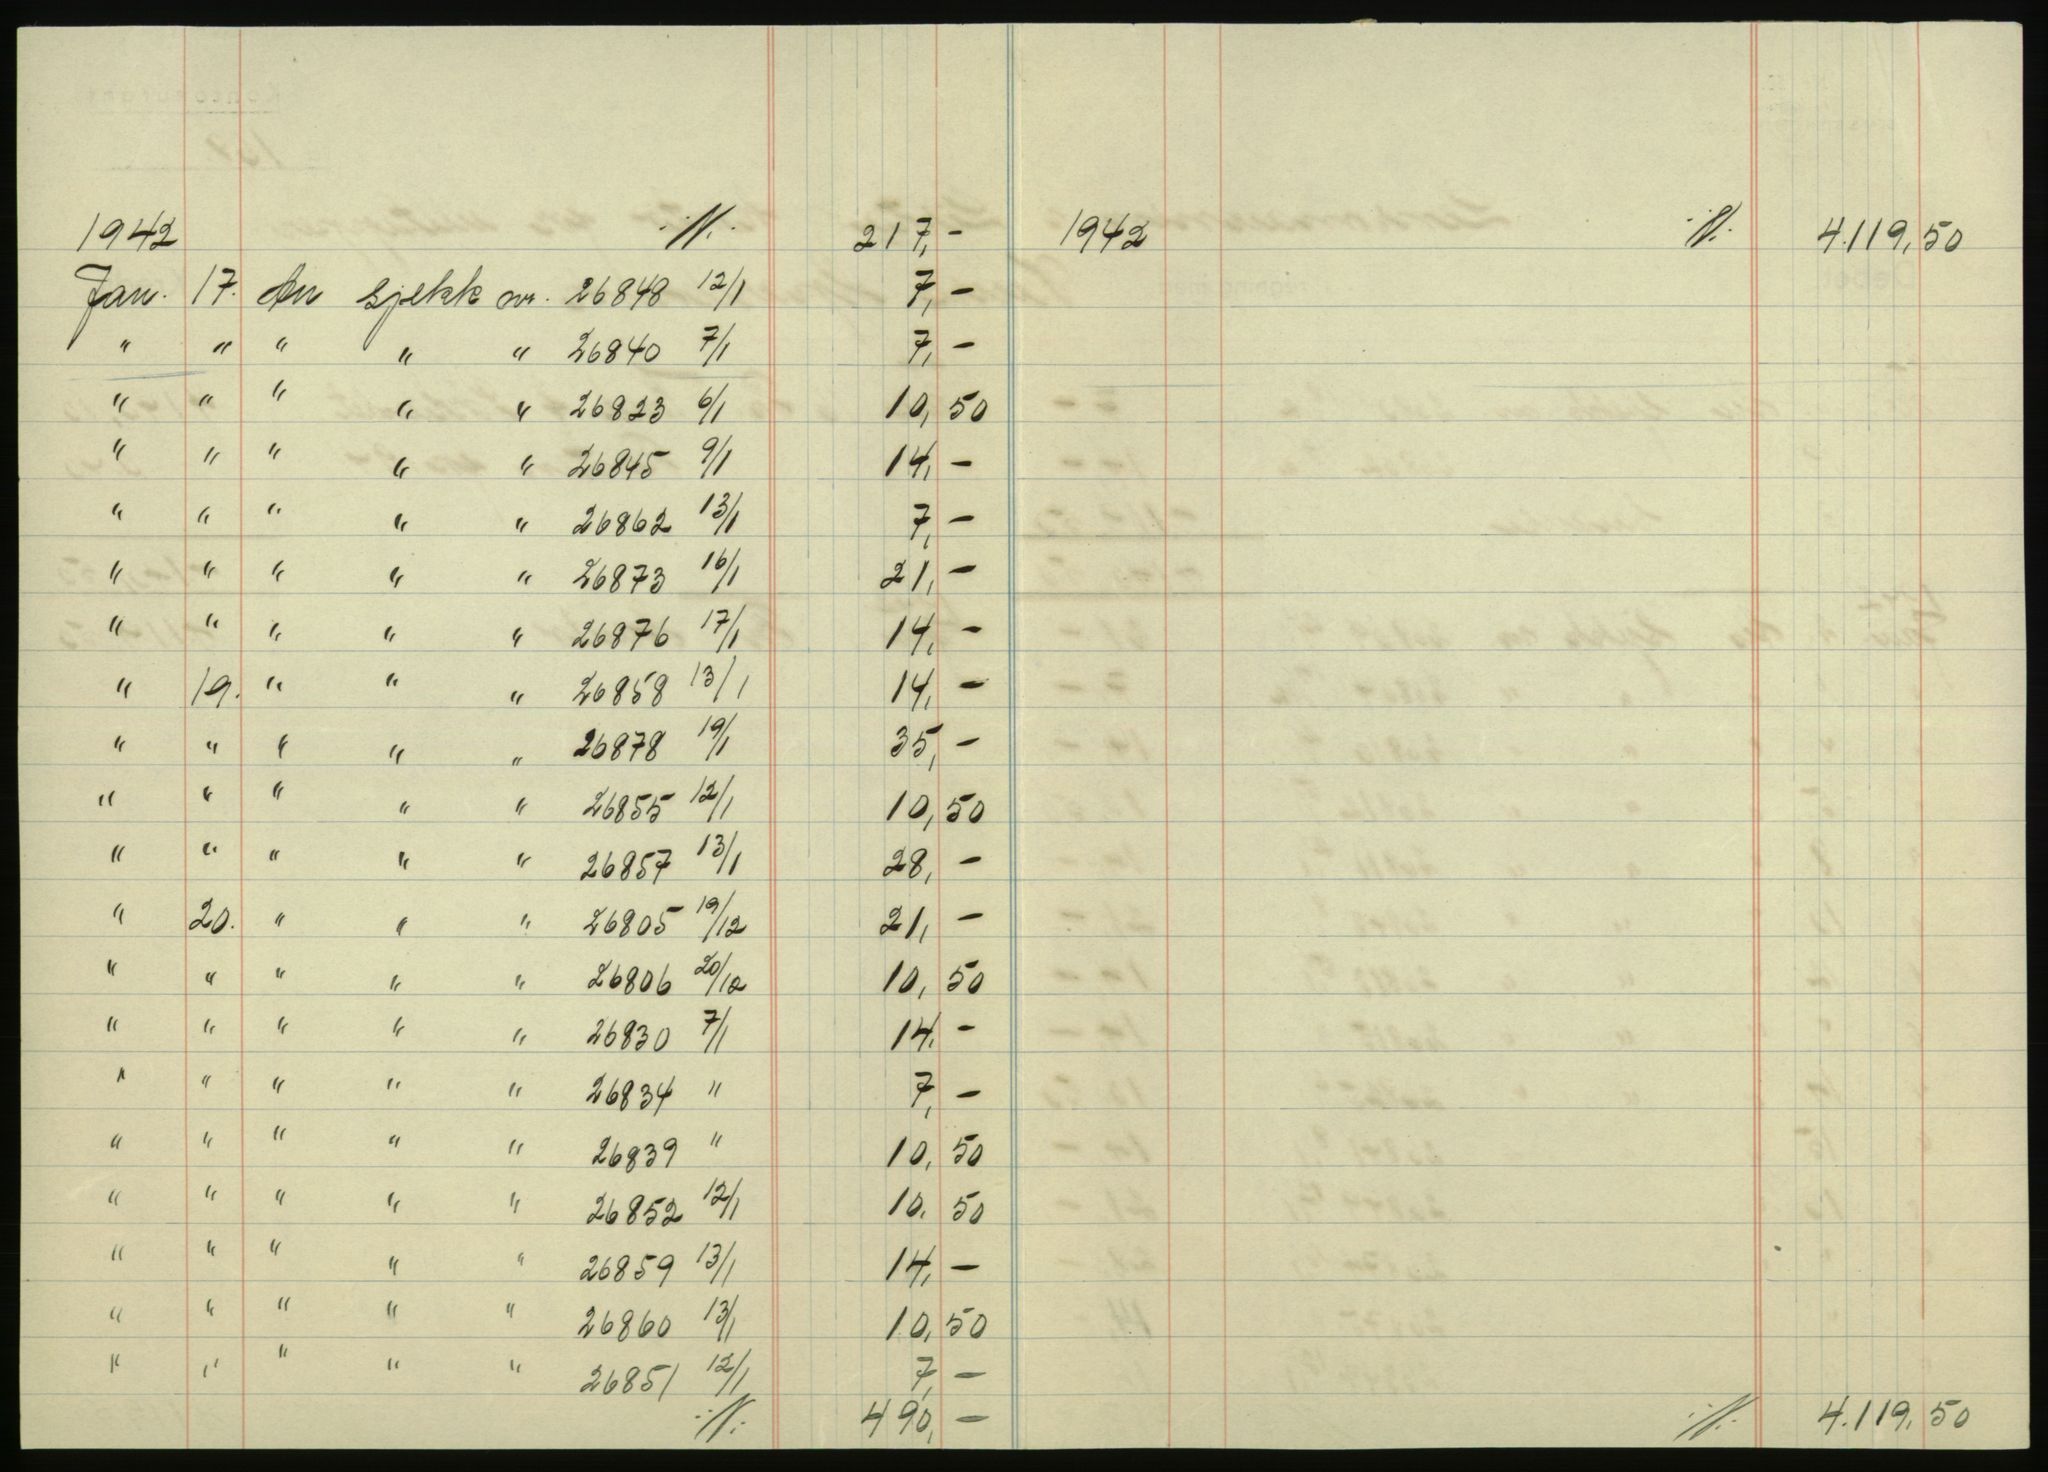 1942 ./. 217,-
Jan. 17. An sjekk nr. 26848 12/1 7,-
" " " " " 26840 7/1 7,-
" " " " " 26823 6/1 10,50
" " " " " 26845 9/1 14,-
" " " " " 26862 13/1 7,-
" " " " " 26873 16/1 21,-
" " " " " 26876 17/1 14,-
" 19. " " " 26858 13/1 14,-
" " " " " 26878 19/1 35,-
" " " " " 26855 12/1 10,50
" " " " " 26857 13/1 28,-
" 20. " " " 26805 19/12 21,-
" " " " " 26806 20/12 10,50
" " " " " 26830 7/1 14,-
" " " " " 26834 " 7,-
" " " " " 26839 " 10,50
" " " " " 26852 12/1 10.50
" " " " " 26859 13/1 14,-
" " " " " 26860 13/1 10,50
" " " " " 26851 12/1 7,-
./. 490,-
1942 ./. 4.119,50
./. 4.119,50